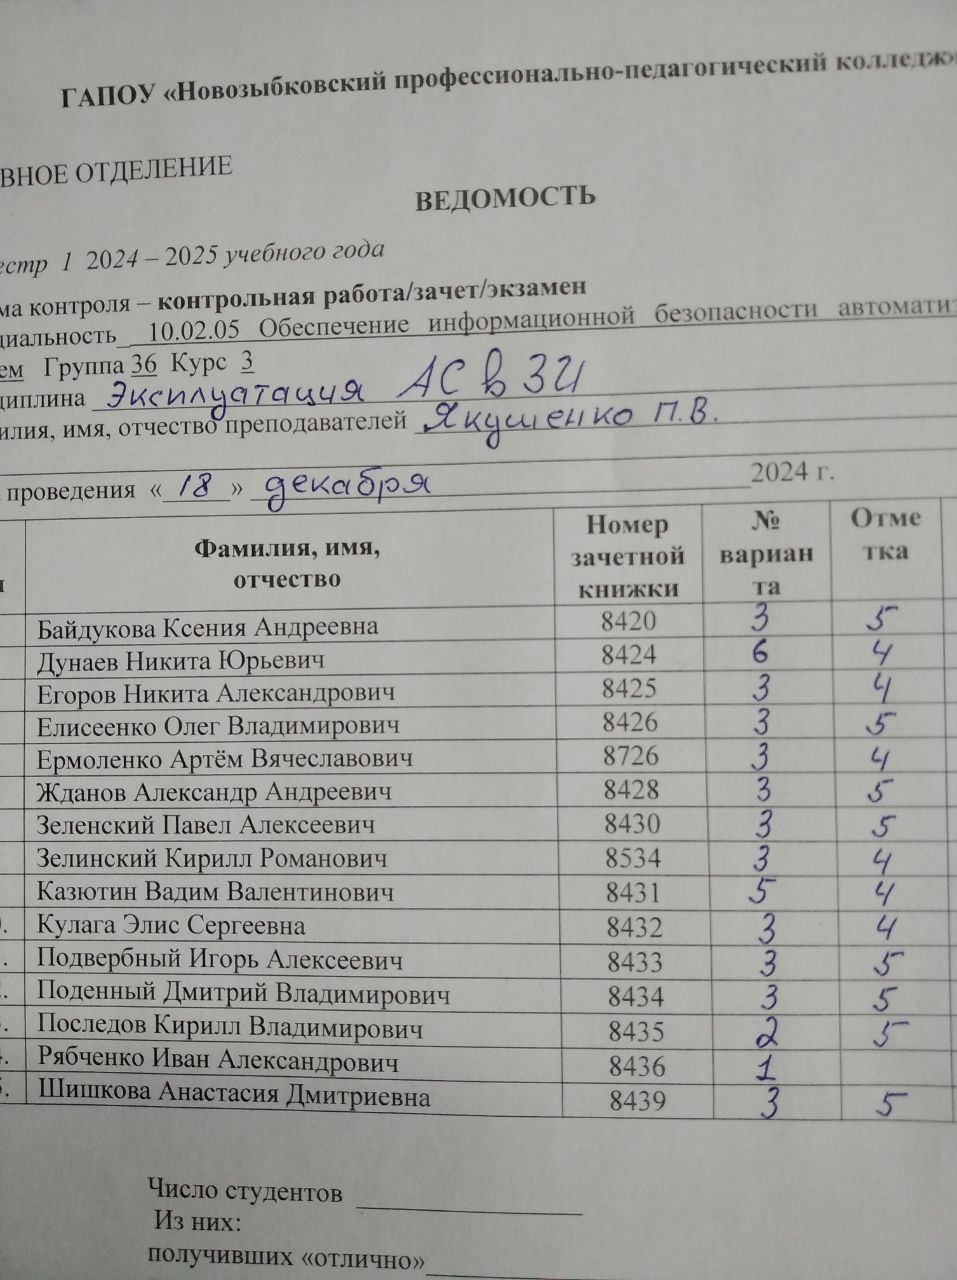 ГАПОУ «Новозыбковский профессионально-педагогический колледж»
ВНОЕ ОТДЕЛЕНИЕ
ВЕДОМОСТЬ
естр 1 2024 – 2025 учебного года
ма контроля – контрольная работа/зачет/экзамен
циальность_ 10.02.05 Обеспечение информационной безопасности автомати
ем Группа 36 Курс 3
циплина Эксплуатация АС в ЗИ
илия, имя, отчество преподавателей Якушенко П.В.
проведения «18» декабря 2024 г.
Фамилия, имя, отчество Номер зачетной книжки № вариан та Отме тка
Байдукова Ксения Андреевна 8420 3 5
Дунаев Никита Юрьевич 8424 6 4
Егоров Никита Александрович 8425 3 4
Елисеенко Олег Владимирович 8426 3 5
Ермоленко Артём Вячеславович 8726 3 4
Жданов Александр Андреевич 8428 3 5
Зеленский Павел Алексеевич 8430 3 5
Зелинский Кирилл Романович 8534 3 4
Казютин Вадим Валентинович 8431 5 4
. Кулага Элис Сергеевна 8432 3 4
. Подвербный Игорь Алексеевич 8433 3 5
. Поденный Дмитрий Владимирович 8434 3 5
. Последов Кирилл Владимирович 8435 2 5
. Рябченко Иван Александрович 8436 1
. Шишкова Анастасия Дмитриевна 8439 3 5
Число студентов
Из них:
получивших «отлично»